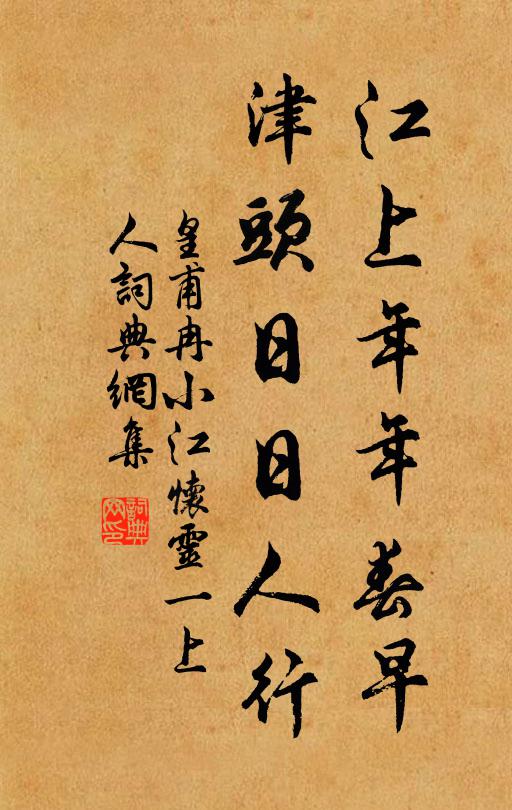 江上年年春早
津頭日日人行
皇甫冉小江懷靈一上
人詞典網集
詞典
网印